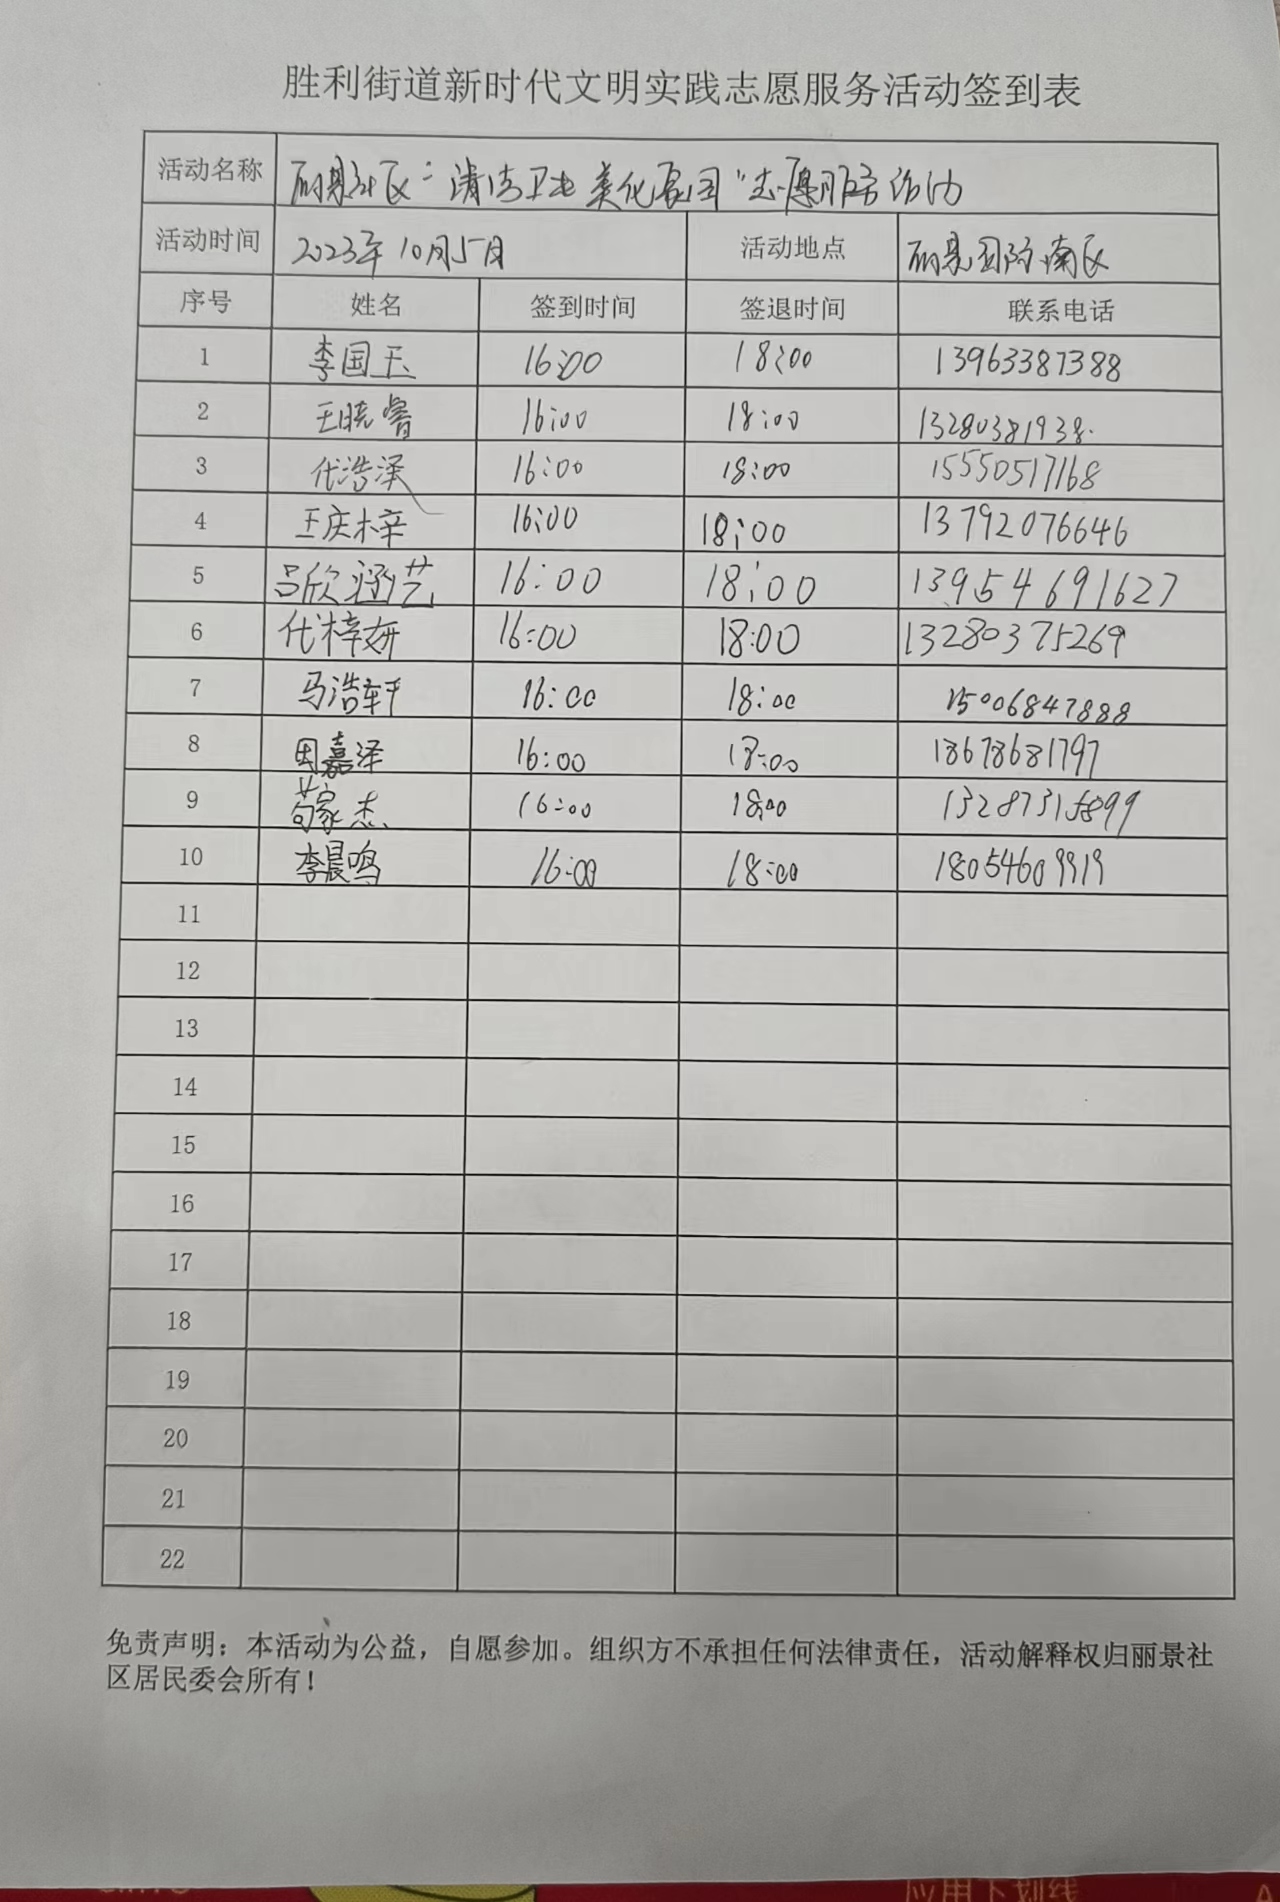 胜利街道新时代文明实践志愿服务活动签到表
活动名称 丽景社区"清洁卫生 美化家园"志愿服务活动
活动时间 2023年10月5日 活动地点 丽景国际南区
序号 姓名 签到时间 签退时间 联系电话
1 李国玉 16:00 18:00 13963387388
2 王晓睿 16:00 18:00 13280381938.
3 代浩泽 16:00 18:00 15550517168
4 王庆梓 16:00 18:00 13792076646
5 吕欣涵艺 16:00 18:00 13954691627
6 代梓妍 16:00 18:00 13280375269
7 马浩轩 16:00 18:00 15006847888
8 田嘉泽 16:00 18:00 18678681797
9 苟家杰 16:00 18:00 13287315899
10 李晨鸣 16:00 18:00 18054609919
11
12
13
14
15
16
17
18
19
20
21
22
免责声明：本活动为公益，自愿参加。组织方不承担任何法律责任，活动解释权归丽景社
区居民委会所有！
应用下划线